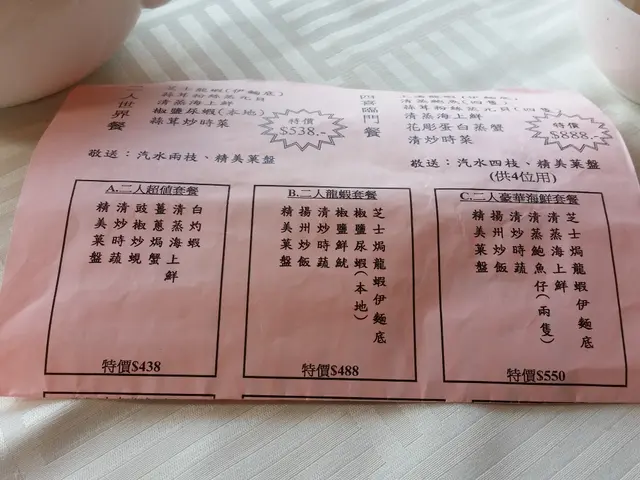 二人世界餐
芝士龍蝦(伊麵底)
蒜茸粉絲蒸元貝
清蒸海上鮮
椒鹽尿蝦(本地)
蒜茸炒時菜
特價
$538.-
敬送：汽水兩枝、精美菓盤
四喜臨門餐
清蒸鮑魚(四隻)
清蒸海上鮮
花彫蛋白蒸蟹
清炒時菜
特價
$888.-
敬送：汽水四枝、精美菓盤
(供4位用)
A.二人超值套餐
白灼蝦
清蒸海上鮮
薑蔥焗蟹
豉椒炒蜆
清炒時蔬
精美菓盤
特價$438
B.二人龍蝦套餐
芝士焗龍蝦伊麵底
椒鹽尿蝦(本地)
椒鹽鮮魷
清炒時蔬
揚州炒飯
精美菓盤
特價$488
C.二人豪華海鮮套餐
芝士焗龍蝦伊麵底
清蒸海上鮮
清蒸鮑魚仔(兩隻)
清炒時蔬
揚州炒飯
精美菓盤
特價$550